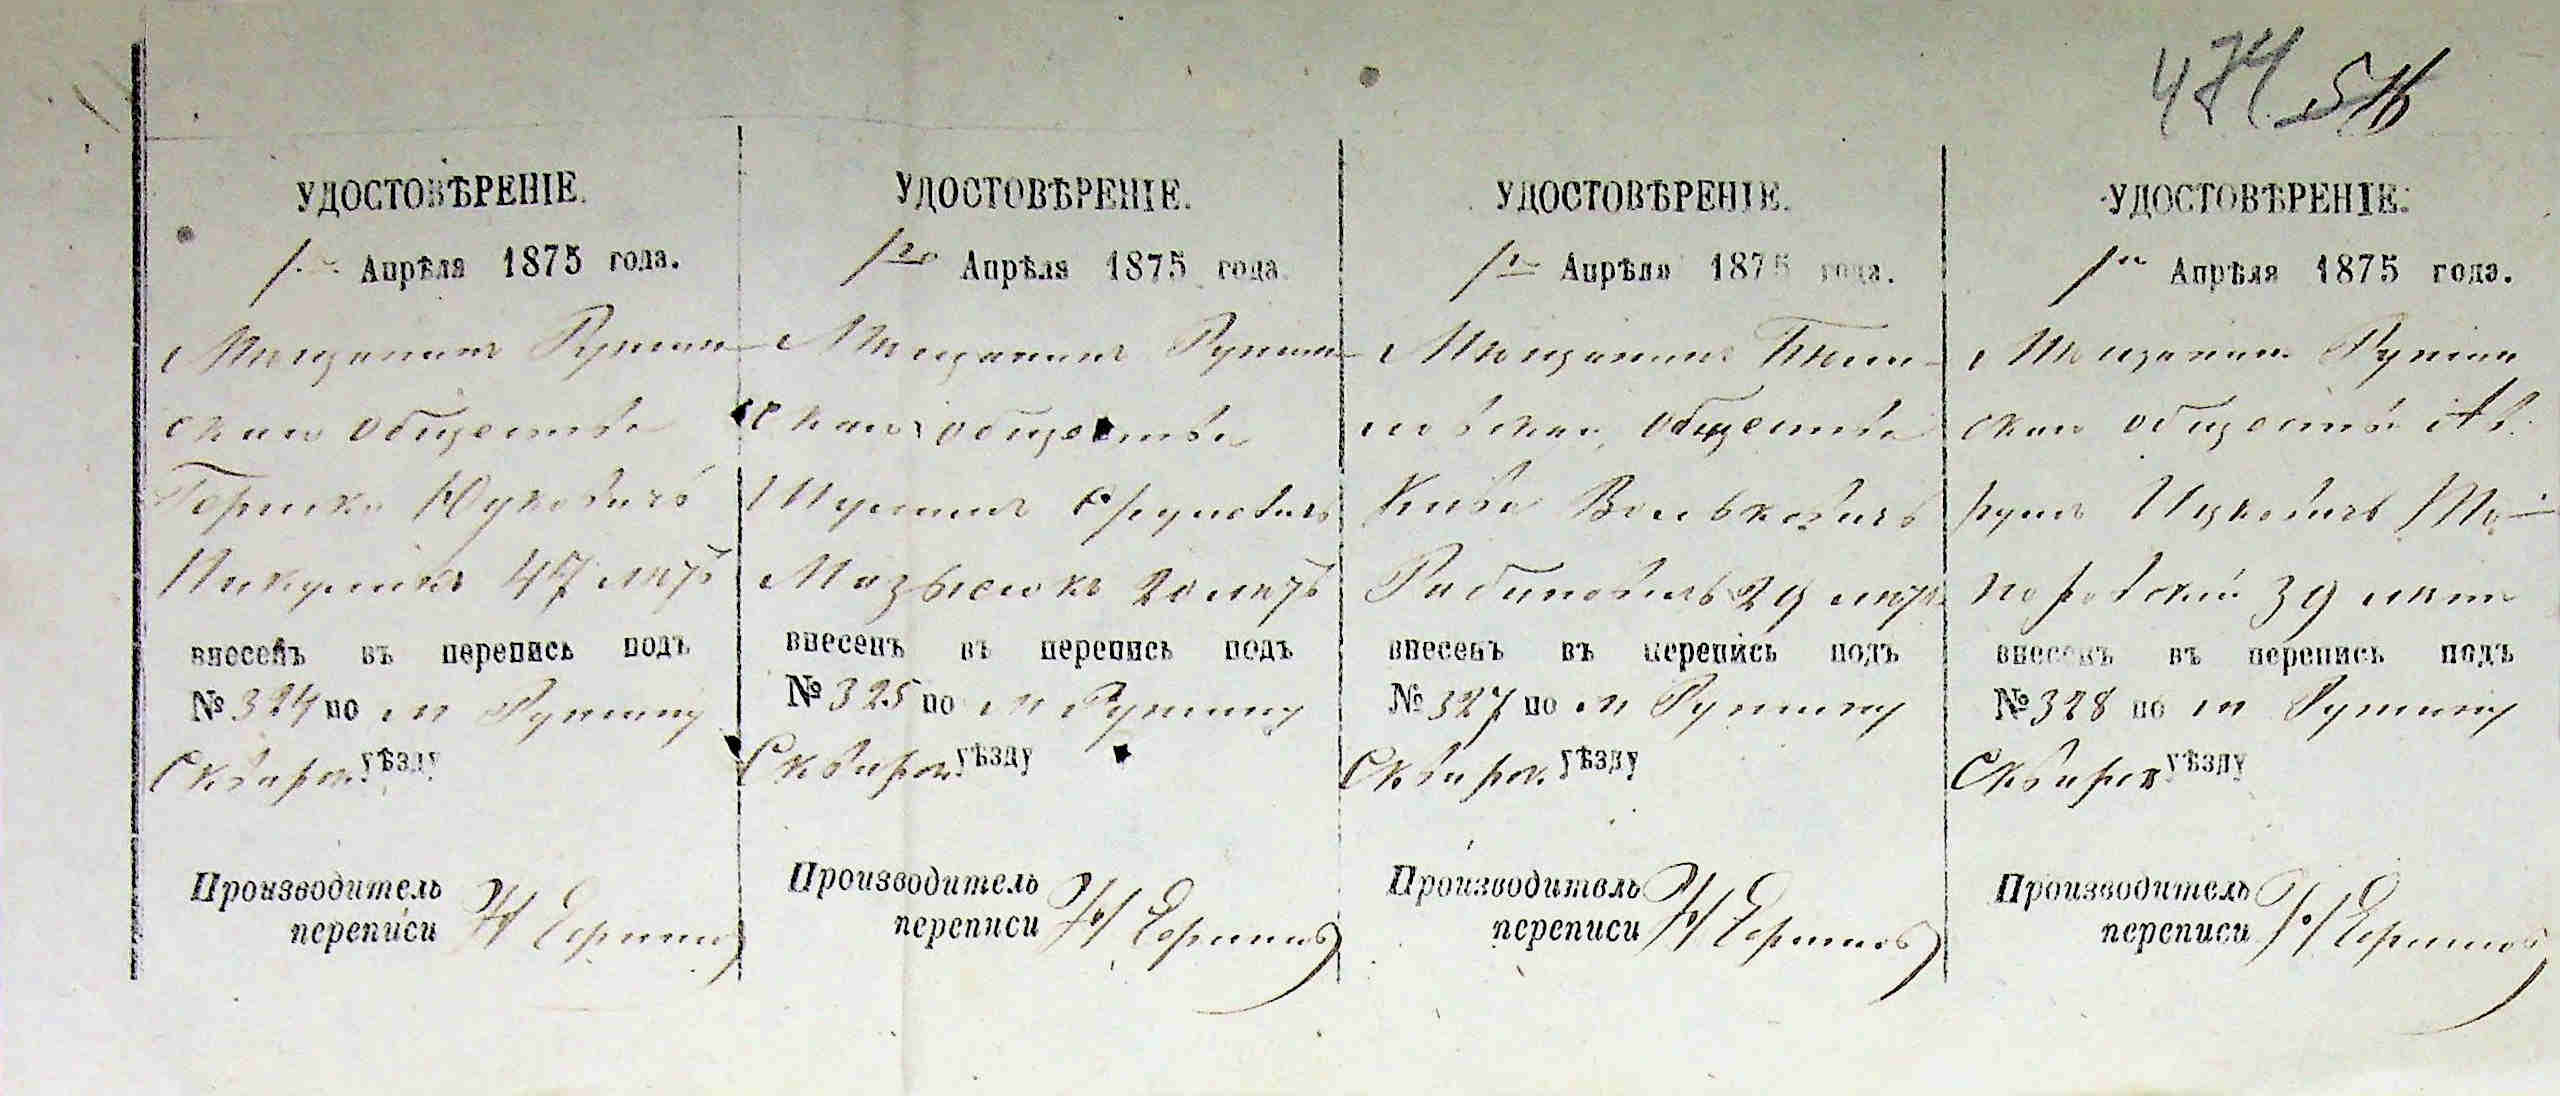 474
УДОСТОВѢРЕНІЕ.
1го Апрѣля 1875 года.
Мѣщанинъ Ружин-
скаго общества
Гершко Юдковичъ
Пикуликъ 47 лѣтъ
внесенъ въ перепись подъ
№ 324 по м Ружину
Сквирск. уѣзду
Производитель
переписи
УДОСТОВѢРЕНІЕ.
1го Апрѣля 1875 года.
Мѣщанинъ Ружин-
скаго общества
Шулимъ Сруловичъ
Мазысюкъ 20 лѣтъ
внесенъ въ перепись подъ
№ 325 по м Ружину
Сквирск. уѣзду
Производитель
переписи
УДОСТОВѢРЕНІЕ.
1го Апрѣля 1875 года.
Мѣщанинъ
общества
Кива Вольковичъ
Рабиновичъ 29 лѣтъ
внесенъ въ перепись подъ
№ 327 по м Ружину
Сквирск. уѣзду
Производитель
переписи
УДОСТОВѢРЕНІЕ.
1го Апрѣля 1875 года.
Мѣщанинъ Ружин
скаго общества Ав-
румъ Ицковичъ
39 лѣтъ
внесенъ въ перепись подъ
№ 328 по м Ружину
Сквирск уѣзду
Производитель
переписи